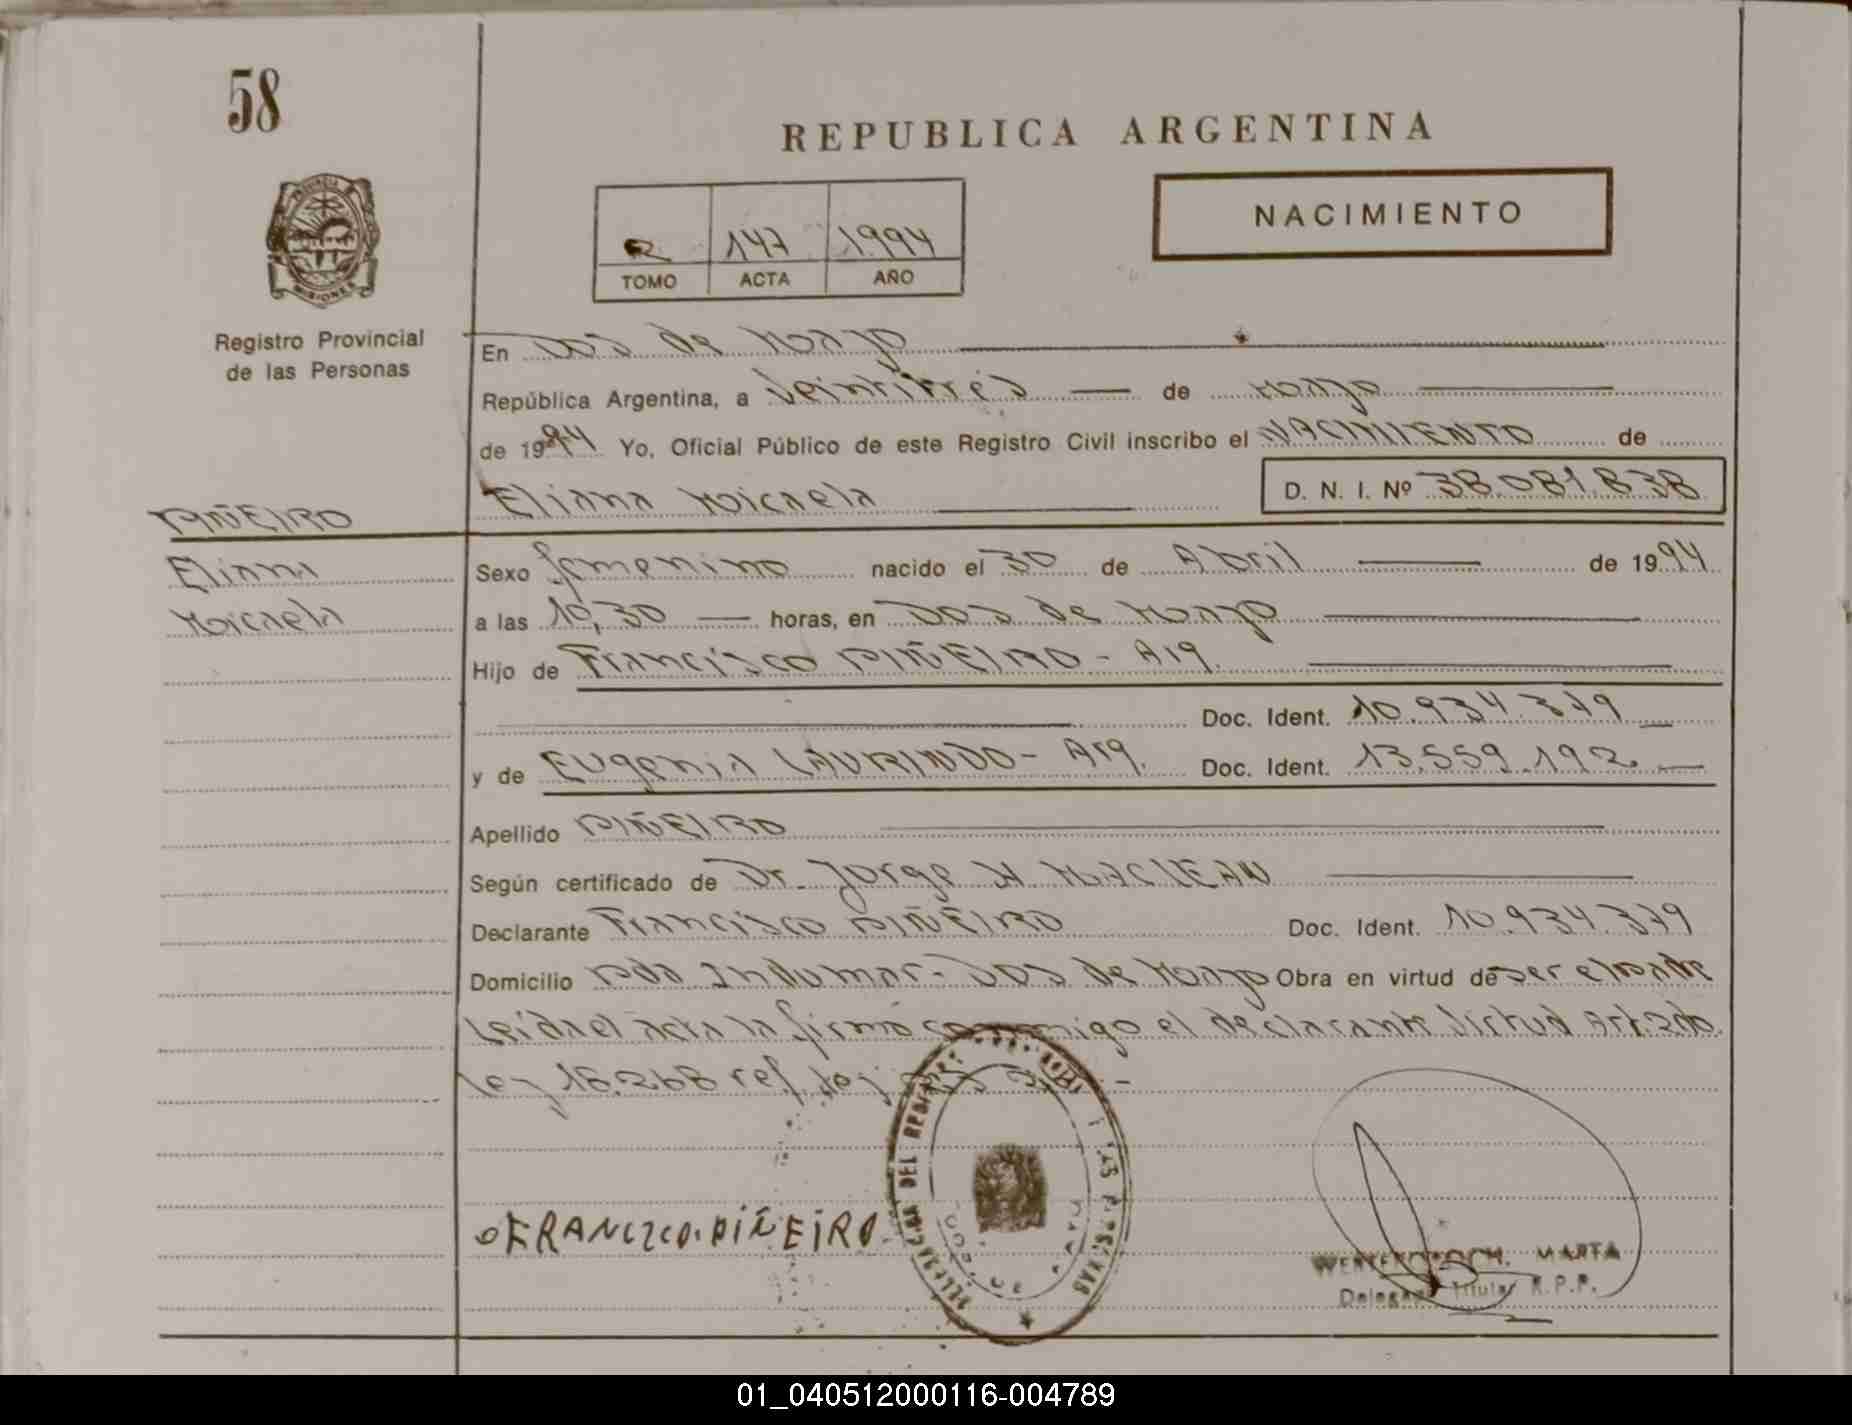 58
REPUBLICA ARGENTINA
NACIMIENTO
147 1994
TOMO ACTA AÑO
PROVINCIA
MISIONES
Registro Provincial
de las Personas
En Dos de Marzo
República Argentina, a Veintitrés de Marzo
de 1994 Yo, Oficial Público de este Registro Civil inscribo el NACIMIENTO de
Eliana Micaela D. N. I. Nº 38.081.838
PIÑEIRO
Eliana
Micaela
Sexo femenino nacido el 30 de Abril de 1994
a las 10,30 horas, en Dos de Marzo
Hijo de Francisco PIÑEIRO - Arg.
Doc. Ident. 10.934.379
y de Eugenia LAURINDO - Arg. Doc. Ident. 13.559.192.
Apellido PIÑEIRO
Según certificado de Dr. Jorge A MACLEAN
Declarante Francisco PIÑEIRO Doc. Ident. 10.934.379
Domicilio Pda Indumar - Dos de Marzo Obra en virtud de ser el padre
Leída el acta la firmó conmigo el declarante Virtud Art. 2do.
ley 18.268 ref. ley
DEL
FRANCIZCO. PIÑEIRO
MARTA
Titular R.P.P.
01_040512000116-004789